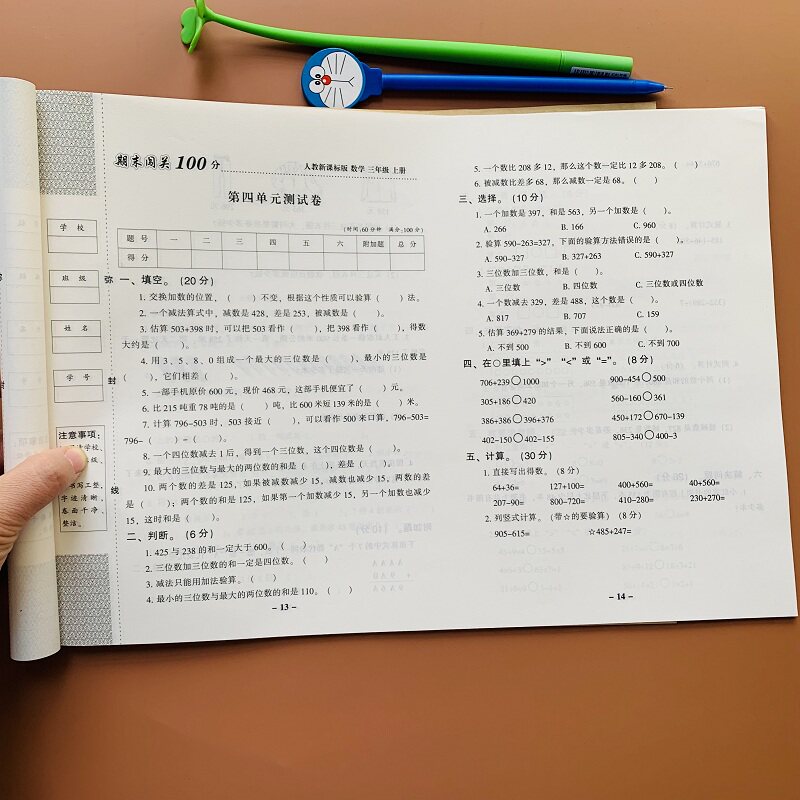 期末闯关100分
人教新课标版 数学 三年级 上册
第四单元测试卷
(时间:60分钟 满分:100分)
题号 一 二 三 四 五 六 附加题 总分
得分
学校
班级
姓名
学号
弥
封
线
注意事项:
书写工整,
字迹清晰,
卷面干净、
整洁。
一、填空。(20分)
1. 交换加数的位置,( )不变,根据这个性质可以验算( )法。
2. 一个减法算式中,减数是428,差是253,被减数是( )。
3. 估算503+398时,可以把503看作( ),把398看作( ),得数
大约是( )。
4. 用3、5、8、0组成一个最大的三位数是( ),最小的三位数是
( ),它们相差( )。
5. 一部手机原价600元,现价468元,这部手机便宜了( )元。
6. 比215吨重78吨的是( )吨,比600米短139米的是( )米。
7. 计算796-503时,503接近( ),可以看作500来口算,796-503=
796-( )-( )。
8. 一个四位数减去1后,得到一个三位数,这个四位数是( )。
9. 最大的三位数与最大的两位数的和是( ),差是( )。
10. 两个数的差是125,如果被减数减少15,减数也减少15,两数的差
是( );两个数的和是125,如果第一个加数减少15,另一个加数也减少
15,这时和是( )。
二、判断。(6分)
1. 425与238的和一定大于600。( )
2. 三位数加三位数的和一定是四位数。( )
3. 减法只能用加法验算。( )
4. 最小的三位数与最大的两位数的和是110。( )
- 13 -
5. 一个数比208多12,那么这个数一定比12多208。( )
6. 被减数比差多68,那么减数一定是68。( )
三、选择。(10分)
1. 一个加数是397,和是563,另一个加数是( )。
A. 266 B. 166 C. 960
2. 验算590-263=327,下面的验算方法错误的是( )。
A. 590-327 B. 327+263 C. 590+327
3. 三位数加三位数,和是( )。
A. 三位数 B. 四位数 C. 三位数或四位数
4. 一个数减去329,差是488,这个数是( )。
A. 817 B. 707 C. 159
5. 估算369+279的结果,下面说法正确的是( )。
A. 不到500 B. 不到600 C. 不到700
四、在○里填上“>”“<”或“=”。(8分)
706+239○1000 900-454○500
305+186○420 560-160○361
386+386○396+376 450+172○670-139
402-150○402-155 805-340○400-3
五、计算。(30分)
1. 直接写出得数。(8分)
64+36= 127+100= 400+560= 40+560=
207-90= 800-720= 410-280= 230+270=
2. 列竖式计算。(带☆的要验算)(8分)
905-615= ☆485+247=
- 14 -